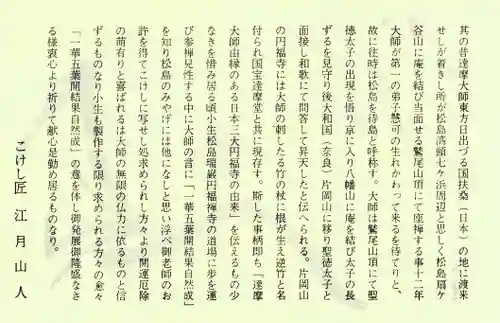 其の昔達摩大師東方日出づる国扶桑（日本）の地に渡来
せしが着きし所が松島高頸七ケ浜周辺と思しく松島扇ケ
谷山に庵を結び当面せる鷲尾山頂にて座禅する事十二年
大師が第一の弟子慧可の生れかわって来るを待てりと、
故に往時は松島を待島と呼称す。大師は鷲尾山頂にて聖
徳太子の出現を悟り京に入り八幡山に庵を結び太子の長
ずるを見守り後大和国（奈良）片岡山に移り聖徳太子と
面接し和歌にて問答して昇天したと伝へられる。片岡山
の円福寺には大師の刺したる竹の杖に根が生え逆竹と名
付られ国宝達摩堂と共に現存す。斯した事柄即ち「達摩
大師由縁のある日本三大円福寺の由来」を伝えるもの少
なきを惜み居る頃小生松島瑞巌円福禅寺の道場に歩を運
び参禅見性する中に大師の言に「一華五葉開結果自然成」
を知り松島のみやげには他になしと思い浮べ御老師のお
許を得てこけしに写せし処求められし方々より開運厄除
の萌有りと喜ばれるは大師の無限の仏力に依るものと信
ずるものなり小生も製作する限り求められる方々の愈々
「一華五葉開結果自然成」の意を体し御発展御隆盛なさ
る様衷心より祈りて献心是勉め居るものなり。
こけし匠　江月山人